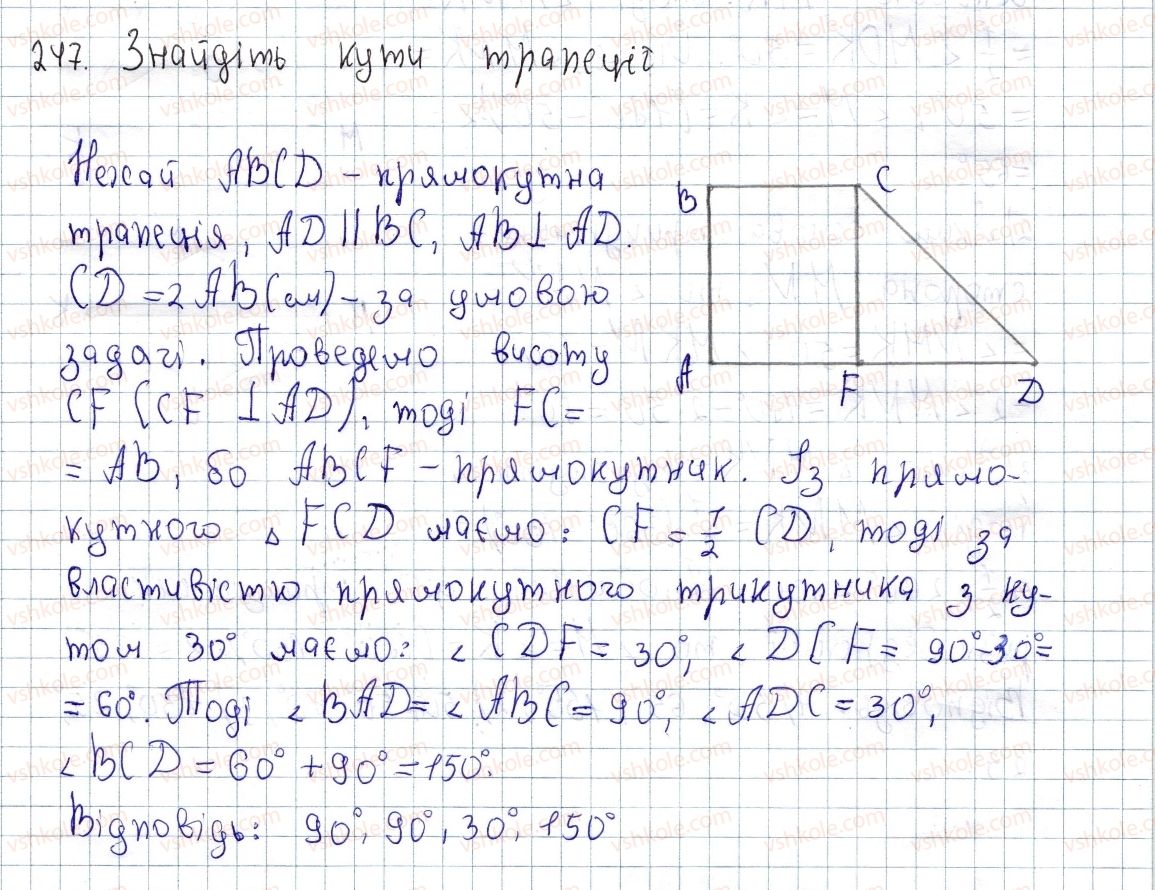 247. Знайдіть кути трапеції
Нехай ABCD – прямокутна
трапеція, AD || BC, AB ⊥ AD.
CD = 2 AB (см) – за умовою
задачі. Проведемо висоту
CF (CF ⊥ AD), тоді FC =
= AB, бо ABCF – прямокутник. Із прямо-
кутного △ FCD маємо: CF = 1/2 CD, тоді за
властивістю прямокутного трикутника з ку-
том 30° маємо: ∠CDF = 30°, ∠DCF = 90°-30° =
= 60°. Тоді ∠BAD = ∠ABC = 90°, ∠ADC = 30°,
∠BCD = 60° + 90° = 150°.
Відповідь: 90°, 90°, 30°, 150°
B
C
A
F
D
vshkole.com